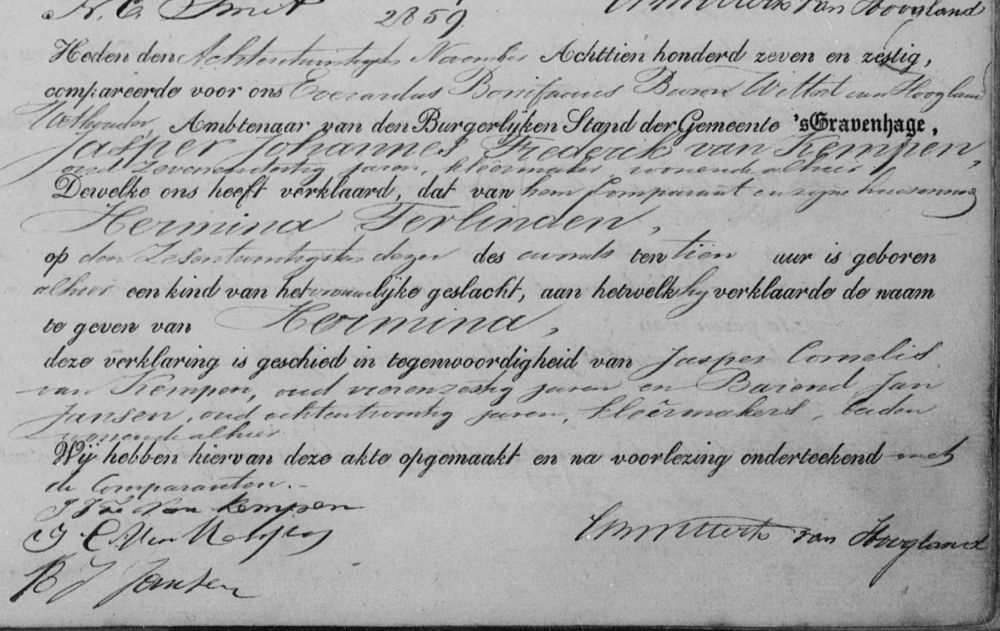 H. C. Smit
van Hoogland
2859
Heden den Achtentwintigste November Achttien honderd zeven en zestig,
compareerde voor ons Everardus Bonifacius Baron Wittert van Hoogland
Wethouder, Ambtenaar van den Burgerlijken Stand der Gemeente 'sGravenhage,
Jasper Johannes Frederik van Kempen,
oud zevenendertig jaren, kleêrmaker, wonende alhier
Dewelke ons heeft verklaard, dat van hem Comparant en zijne huisvrouw
Hermina Terlinden,
op den Zesentwintigsten dezer des avonds ten tien uur is geboren
alhier een kind van het vrouwelijke geslacht, aan hetwelk hij verklaarde de naam
te geven van Hermina,
deze verklaring is geschied in tegenwoordigheid van Jasper Cornelis
van Kempen, oud vierenzestig jaren en Barend Jan
Jansen, oud achtentwintig jaren, kleêrmakers, beiden
wonende alhier
Wij hebben hiervan deze akte opgemaakt en na voorlezing onderteekend met
de Comparanten.
van Kempen
J C van Kempen
van Hoogland
B J Jansen